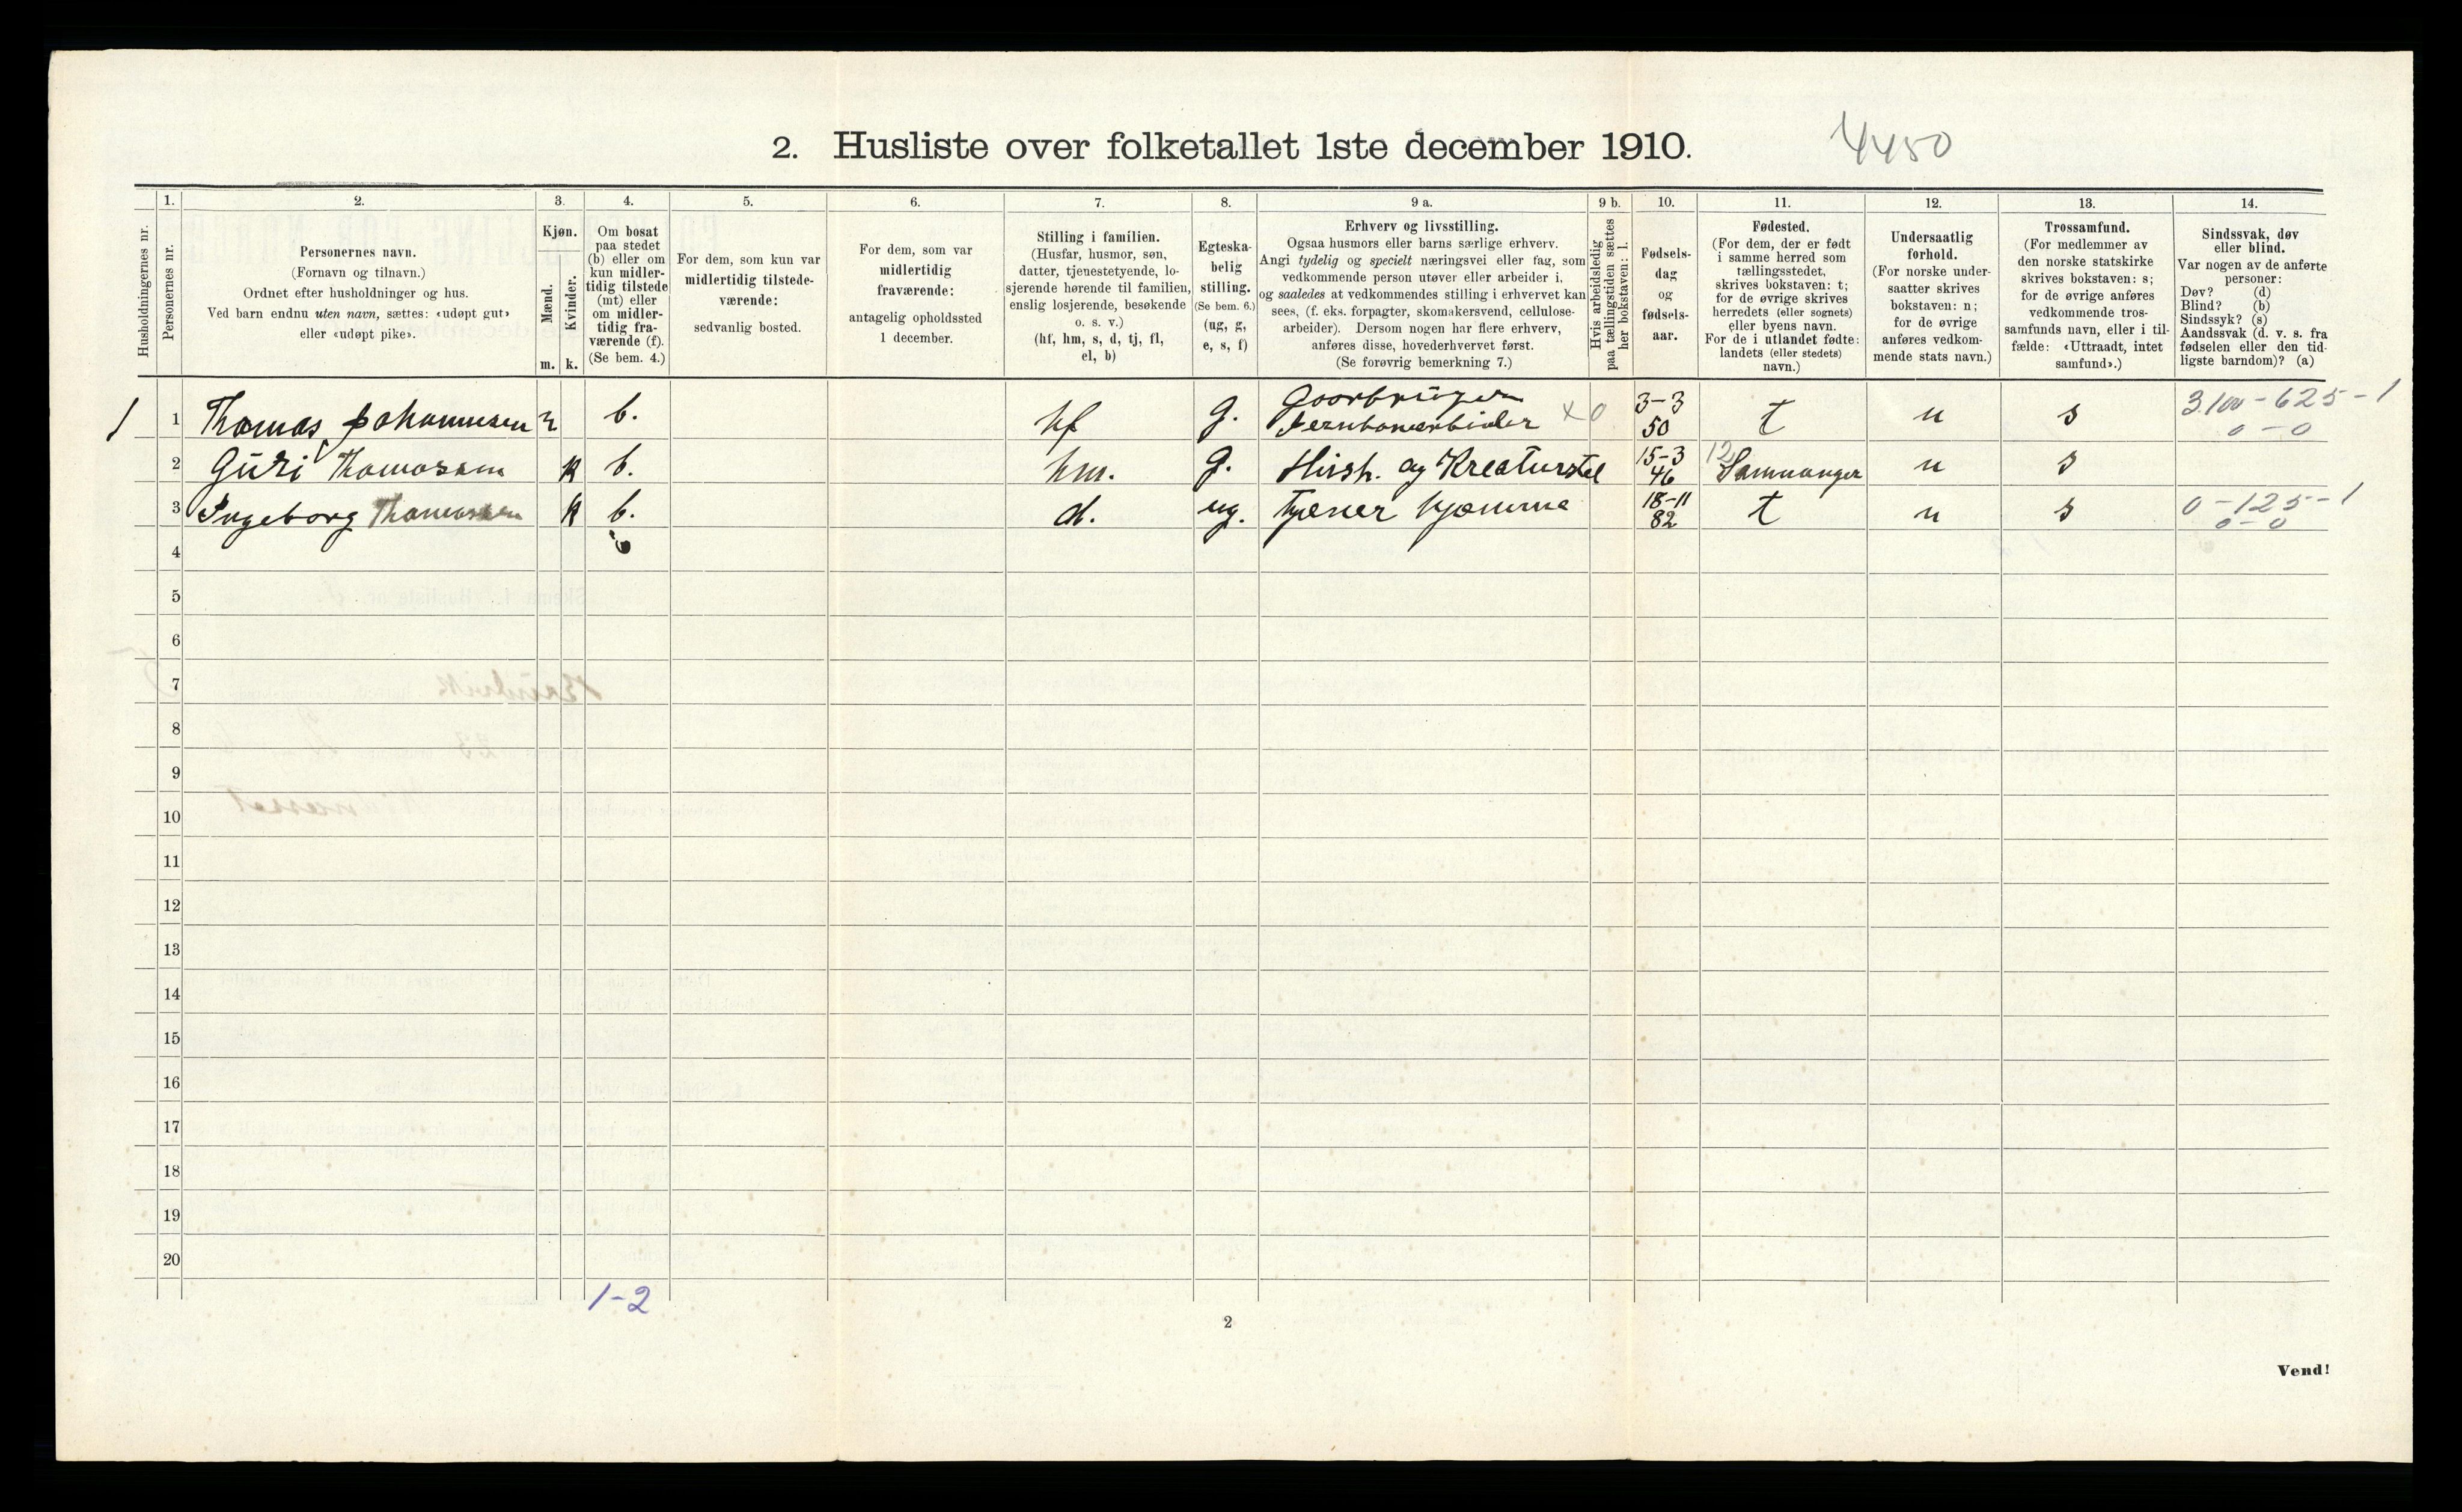 2. Husliste over folketallet 1ste december 1910.
4450
Husholdningernes nr.
1.
Personernes nr.
2.
Personernes navn.
(Fornavn og tilnavn.)
Ordnet efter husholdninger og hus.
Ved barn endnu uten navn, sættes: «udøpt gut»
eller «udøpt pike».
3.
Kjøn.
Mænd.
Kvinder.
m.
k.
4.
Om bosat
paa stedet
(b) eller om
kun midler-
tidig tilstede
(mt) eller
om midler-
tidig fra-
værende (f).
(Se bem. 4.)
5.
For dem, som kun var
midlertidig tilstede-
værende:
sedvanlig bosted.
6.
For dem, som var
midlertidig
fraværende:
antagelig opholdssted
1 december.
7.
Stilling i familien.
(Husfar, husmor, søn,
datter, tjenestetyende, lo-
sjerende hørende til familien,
enslig losjerende, besøkende
o. s. v.)
(hf, hm, s, d, tj, fl,
el, b)
8.
Egteska-
belig
stilling.
(Se bem. 6.)
(ug, g,
e, s, f)
9 a.
Erhverv og livsstilling.
Ogsaa husmors eller barns særlige erhverv.
Angi tydelig og specielt næringsvei eller fag, som
vedkommende person utøver eller arbeider i,
og saaledes at vedkommendes stilling i erhvervet kan
sees, (f. eks. forpagter, skomakersvend, cellulose-
arbeider). Dersom nogen har flere erhverv,
anføres disse, hovederhvervet først.
(Se forøvrig bemerkning 7.)
9 b.
Hvis arbeidsledig
paa tællingstiden sættes
her bokstaven: l.
10.
Fødsels-
dag
og
fødsels-
aar.
11.
Fødested.
(For dem, der er født
i samme herred som
tællingsstedet,
skrives bokstaven: t;
for de øvrige skrives
herredets (eller sognets)
eller byens navn.
For de i utlandet fødte:
landets (eller stedets)
navn.)
12.
Undersaatlig
forhold.
(For norske under-
saatter skrives
bokstaven: n;
for de øvrige
anføres vedkom-
mende stats navn.)
13.
Trossamfund.
(For medlemmer av
den norske statskirke
skrives bokstaven: s;
for de øvrige anføres
vedkommende tros-
samfunds navn, eller i til-
fælde: «Uttraadt, intet
samfund».)
14.
Sindssvak, døv
eller blind.
Var nogen av de anførte
personer:
Døv? (d)
Blind? (b)
Sindssyk? (s)
Aandssvak (d. v. s. fra
fødselen eller den tid-
ligste barndom)? (a)
1 1 Thomas Johannesen m b. hf g. Goorbruger Jernbanearbeider x0 3-3 50 t n s 3.100-625-1 0-0
2 Guri Thomassen k b. hm. g. Hush. og Kreaturstel 15-3 46 12 Samnanger n s
3 Ingeborg Thomassen k b. d. ug. Tjener hjemme 18-11 82 t n s 0-125-1 0-0
4
5
6
7
8
9
10
11
12
13
14
15
16
17
18
19
20
1-2
2
Vend!